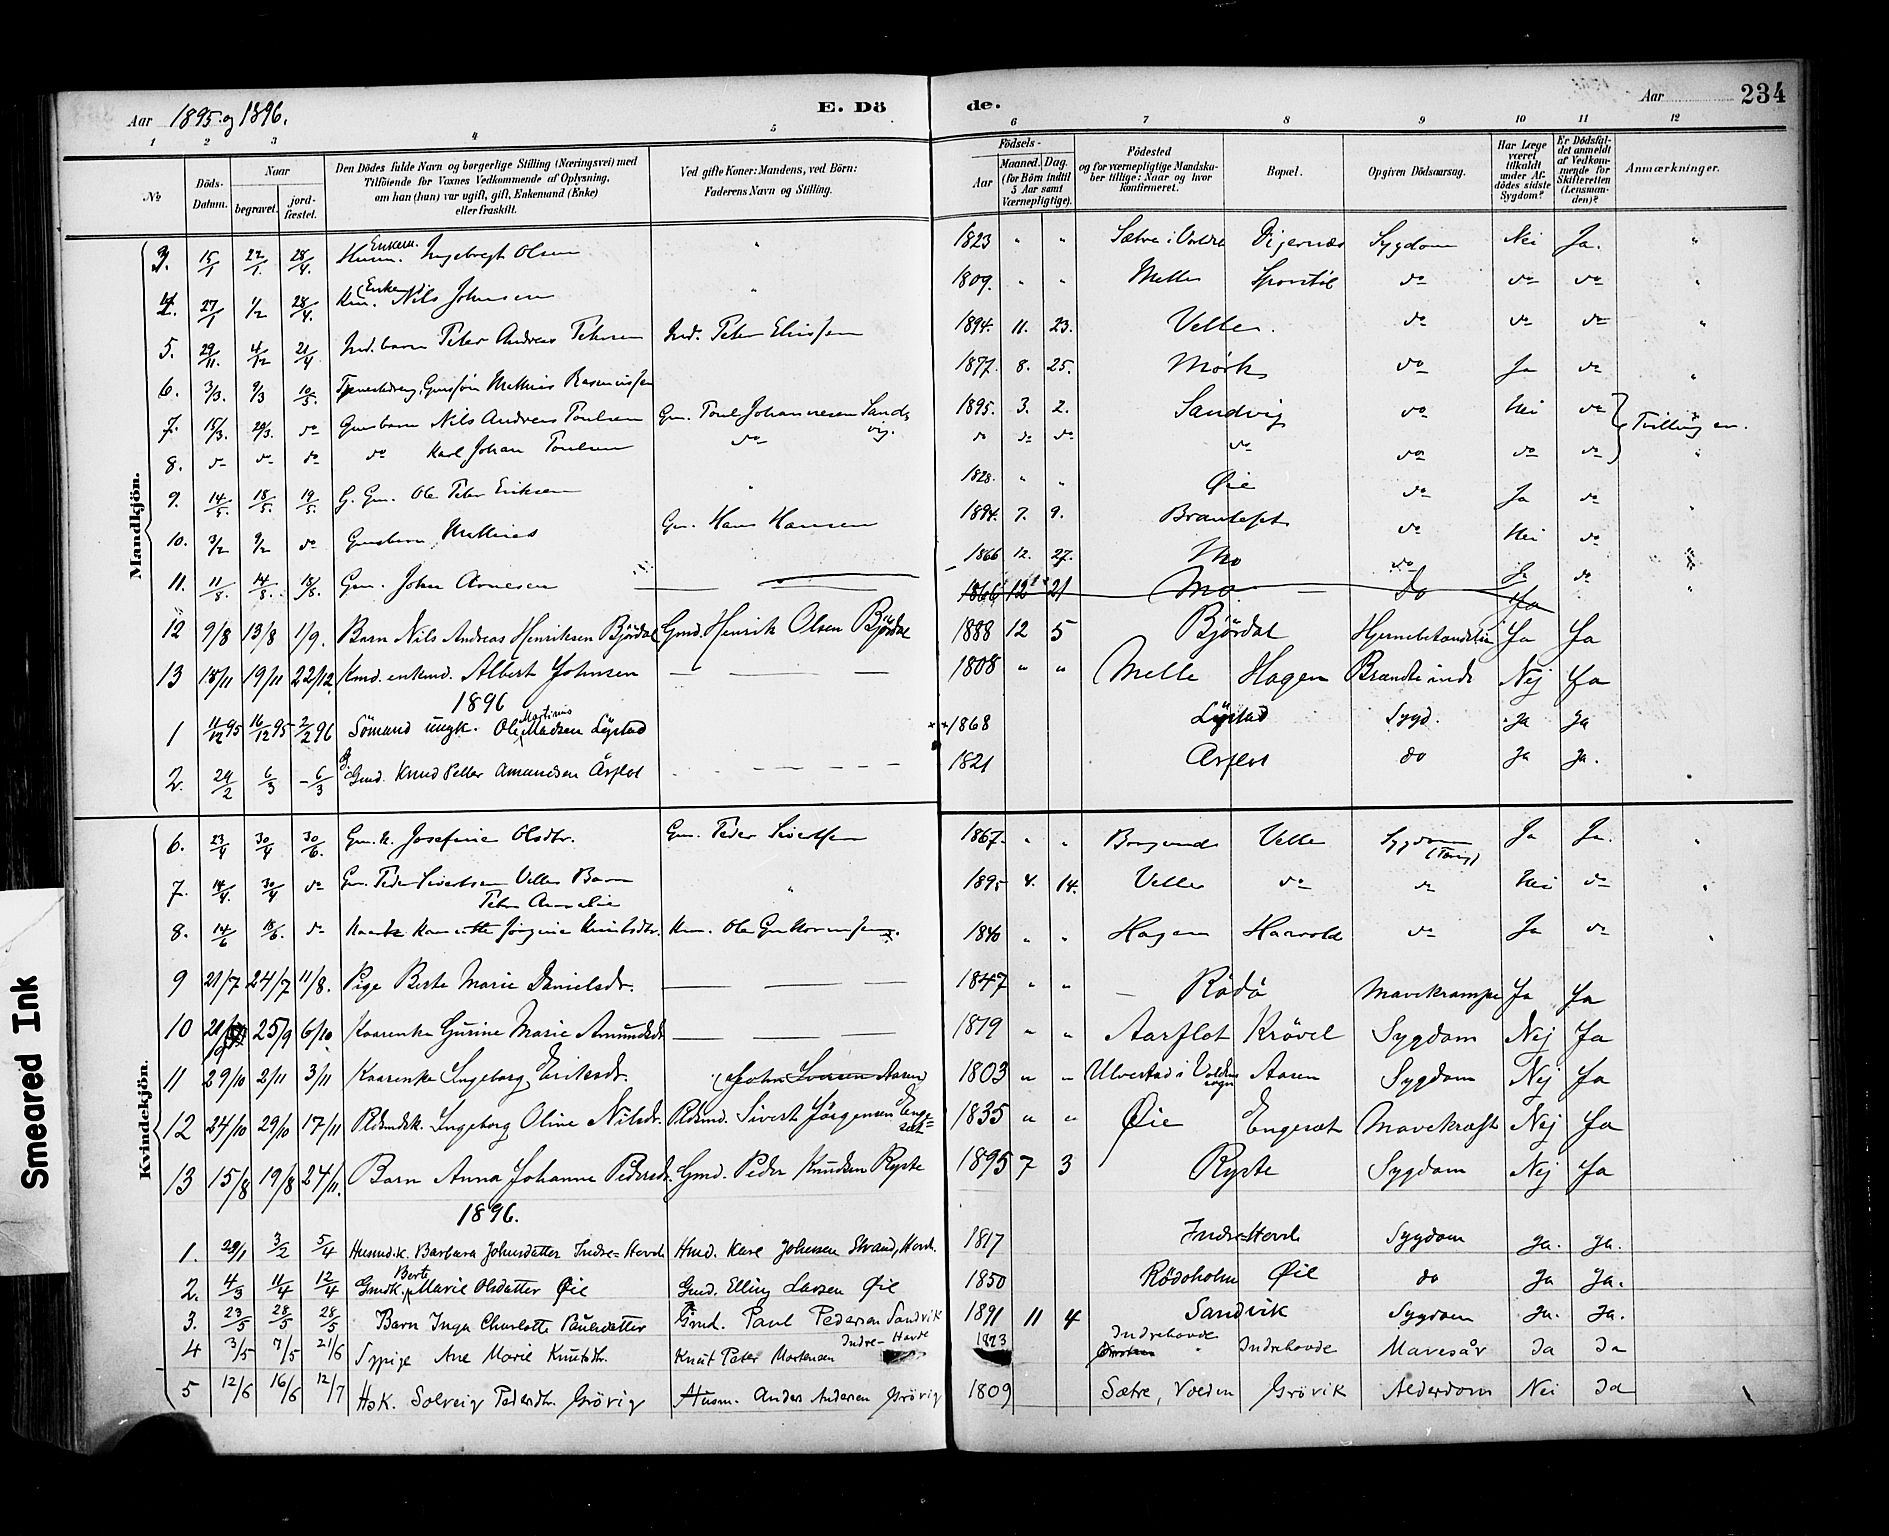 Aar 1895 og 1896.
E. Dö
de.
Aar 234
1 2 3 4 5 6 7 8 9 10 11 12
№
Döds-Datum.
Naar
begravet.
jord-fæstet.
Den Dödes fulde Navn og borgerlige Stilling (Næringsvei) med
Tilföiende for Voxnes Vedkommende af Oplysning,
om han (hun) var ugift, gift, Enkemand (Enke)
eller fraskilt.
Ved gifte Koner: Mandens, ved Börn:
Faderens Navn og Stilling.
Födsels-
Aar
Maaned. Dag.
(for Börn indtil
5 Aar samt
Værnepligtige).
Födested
og for værnepligtige Mandska-
ber tillige: Naar og hvor
konfirmeret.
Bopæl.
Opgiven Dödsaarsag.
Har Læge
været
tilkaldt
under Af-
dödes sidste
Sygdom?
Er Dödsfal-
det anmeldt
af Vedkom-
mende for
Skifteretten
(Lensman-
den)?
Anmærkninger.
Mandkjön.
3. 15/1 22/1. 28/4. Enkem. Ingebregt Olsen " 1823 " " Sætre i Volden Sygdom Nei Ja. "
4. 27/1 1/2 28/4. Nils Johnsen " 1809. " " Melle do do do "
5. 29/11. 4/12 21/4 Ind. barn Peter Andreas Petersen Ind. Peter 1894. 11. 23. Velle. do do do "
6. 3/3. 9/3 10/5. Mathias Rasmussen 1877. 8. 25. Mörk do Ja do "
7. 15/3. 20/3. do Gmsbarn Nils Andreas Poulsen Gm. Poul Johannesen Sandvig. 1895. 3. 2. Sandvig do Nei do Tvillinger.
8. do do do do Karl Johan Poulsen do do do do do do do do "
9. 14/5. 18/5. 19/5. G. Gm. Ole Peter Eriksen " 1828. " " Öie do Ja do "
10. 3/2 9/2 do Gmsbarn Mathias Gm. Hans Hansen 1894. 7. 9. do Nei do "
11. 11/8. 14/8. 18/8. Gm. John Arnesen 1866 12. 27. Mo do Ja do "
1866 12 21 Mo do Ja
12 9/8 13/8 1/9. Barn Nils Andreas Henriksen Björdal Gmd. Henrik Olsen Björdal 1888 12 5 Björdal Ja Ja
13 15/11 19/11 22/12. Kmd. enkmd. Albert Johnsen 1808 " " Melle Hagen Nej Ja
1896
1 11/12 95 16/12 95 2/2 96 Sömand ungk. Ole Martinus Madsen Løstad 1868 Løstad Sygd. Ja Ja
2. 24/2 6/3 6/3 G. Gmd. Knud Petter Amundsen Årflot 1821 Årflot do Ja Ja.
Kvindekjön.
6. 23/4 30/4 30/6. Gm. k. Josefine Olsdtr. Gm. Peder Sivertsen 1867. " " Borgund Velle Sygdom (Tæring) Ja Ja. "
7. 14/4. 30/4 do Gm. Peder Sivertsen Velle Barn
" 1895 4. 14. Velle do do Nei do "
8. 14/6 18/6. do Jörgine Knutsdtr. Km. Ole Guttormsen. 1840 " " Hagen Haavold do Ja do "
9 21/7 24/7 11/8. Pige Berte Marie Danielsdr. 1847 " " Rödö Mavekrampe Ja Ja
10 25/9 6/10. Kaarenke Gurine Marie Amundsdr. 1819 " " Aarflot Krövel Sygdom Nej Ja
11 29/10 2/11 3/11 Kaarenke Ingeborg Eriksdr. (John Iversen Aasen) 1803 " " Ulvestad i Voldens sogn Aasen Sygdom Nej Ja
12 24/10 29/10 17/11 Ingeborg Oline Nilsdr. Sivert Jörgensen Engeset 1835 " " Öie Engeset Mavekræft Nej Ja
13 15/8 19/8 24/11. Barn Anna Johanne Pedersdr. Gmd. Peder Knudsen Ryste 1895 7 3 Ryste Sygdom Nej Ja
1896.
1. 29/1 3/2 5/4 Husmdk. Barbara Johnsdatter Indre-Hovde Hmd. Kare Johnsen Strand, Hovde. 1817 Indre-Hovde Sygdom Ja. Ja.
2. 4/3 11/4 12/4 Gmdk. Berte Marie Olsdatter Öie Gmd. Elling Larsen Öie 1850 Rödöholm Öie do Ja Ja.
3. 23/5 28/5 28/5 Barn Inga Charlotte Paulsdatter Gmd. Paul Pedersen Sandvik 1891 11 4 Sandvik Sygdom Ja. Ja.
4 3/5 7/5 21/6 Sypige Ane Marie Knutsdtr. Knut Peter Mortensen Indre-Hovde 1823 Indrehovde " Indrehovde Mavesår Ja Ja
5 12/6 16/6 12/7 Hsk. Solveig Pedersdtr. Grövig Husm. Anders Andersen Grövig 1809 Sætre, Volden Grövik Alderdom Nei Ja
Smeared Ink